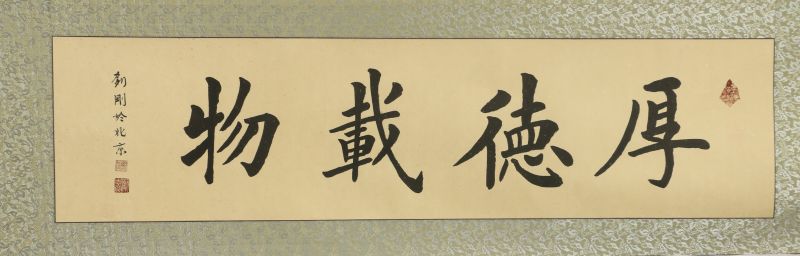 厚德載物
劉剛於北京